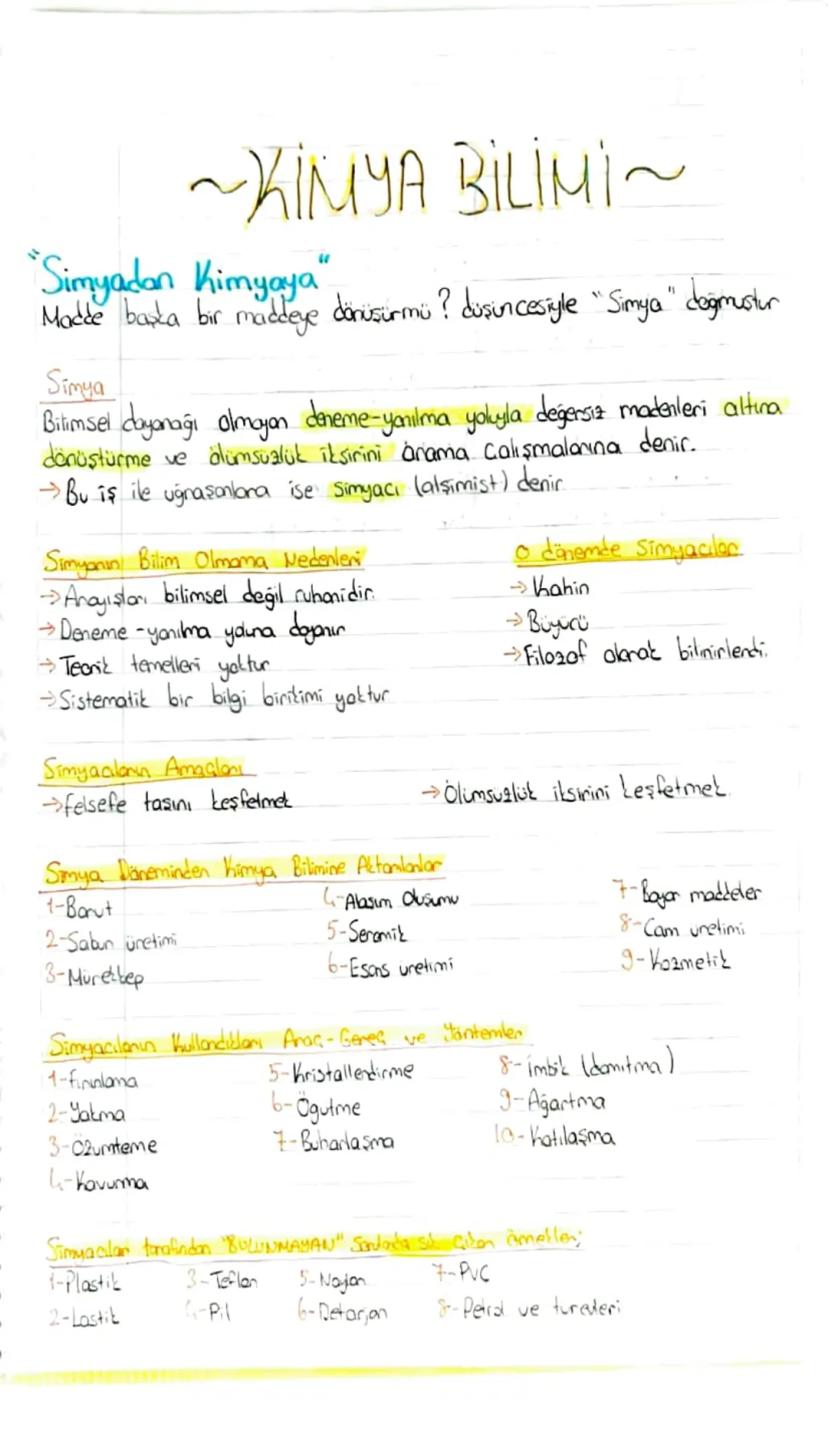 ~KİMYA BİLİMİ~
"Simyadan Kimyaya"
Madde başka bir maddeye dönüşürmü? düşüncesiyle "Simya" doğmuştur
Simya
Bilimsel dayanağı olmayan deneme-yanılma yoluyla değersiz madenleri altına
dönüştürme ve ölümsüzlük iksirini arama çalışmalarına denir.
→Bu iş ile uğraşanlara ise simyacı (alşimist) denir
Simyanın Bilim Olmama Nedenleri
→Arayışları bilimsel değil ruhanidir.
→Deneme-yanılma yoluna dayanır
→Teorik temelleri yoktur
→Sistematik bir bilgi birikimi yoktur
O dönemde Simyacılar
→Kahin
→Büyücü
→Filozof olarak bilinirlerdi.
Simyacıların Amaçları
→felsefe taşını keşfetmek
→Ölümsüzlük iksirini keşfetmek
Simya Döneminden Kimya Bilimine Aktarılanlar
1-Barut
2-Sabun üretimi
3-Mürekkep
4-Alaşım Oluşumu
5-Seramik
6-Esans üretimi
7-Boyar maddeler
8-Cam üretimi
9-Kozmetik
Simyacıların Kullandıkları Araç-Gereç ve Yöntemler
1-Fırınlama
2-Yakma
3-Özümleme
4-Kavurma
5-Kristallendirme
6-Öğütme
7-Buharlaşma
8-İmbik (damıtma)
9-Ağartma
10-Katılaşma
Simyacılar tarafından "BULUNMAYAN" Sorularda sık çıkan örnekler;
1-Plastik
2-Lastik
3-Teflon
4-Pil
5-Naylon
6-Deterjan
7-PVC
8-Petrol ve türevleri